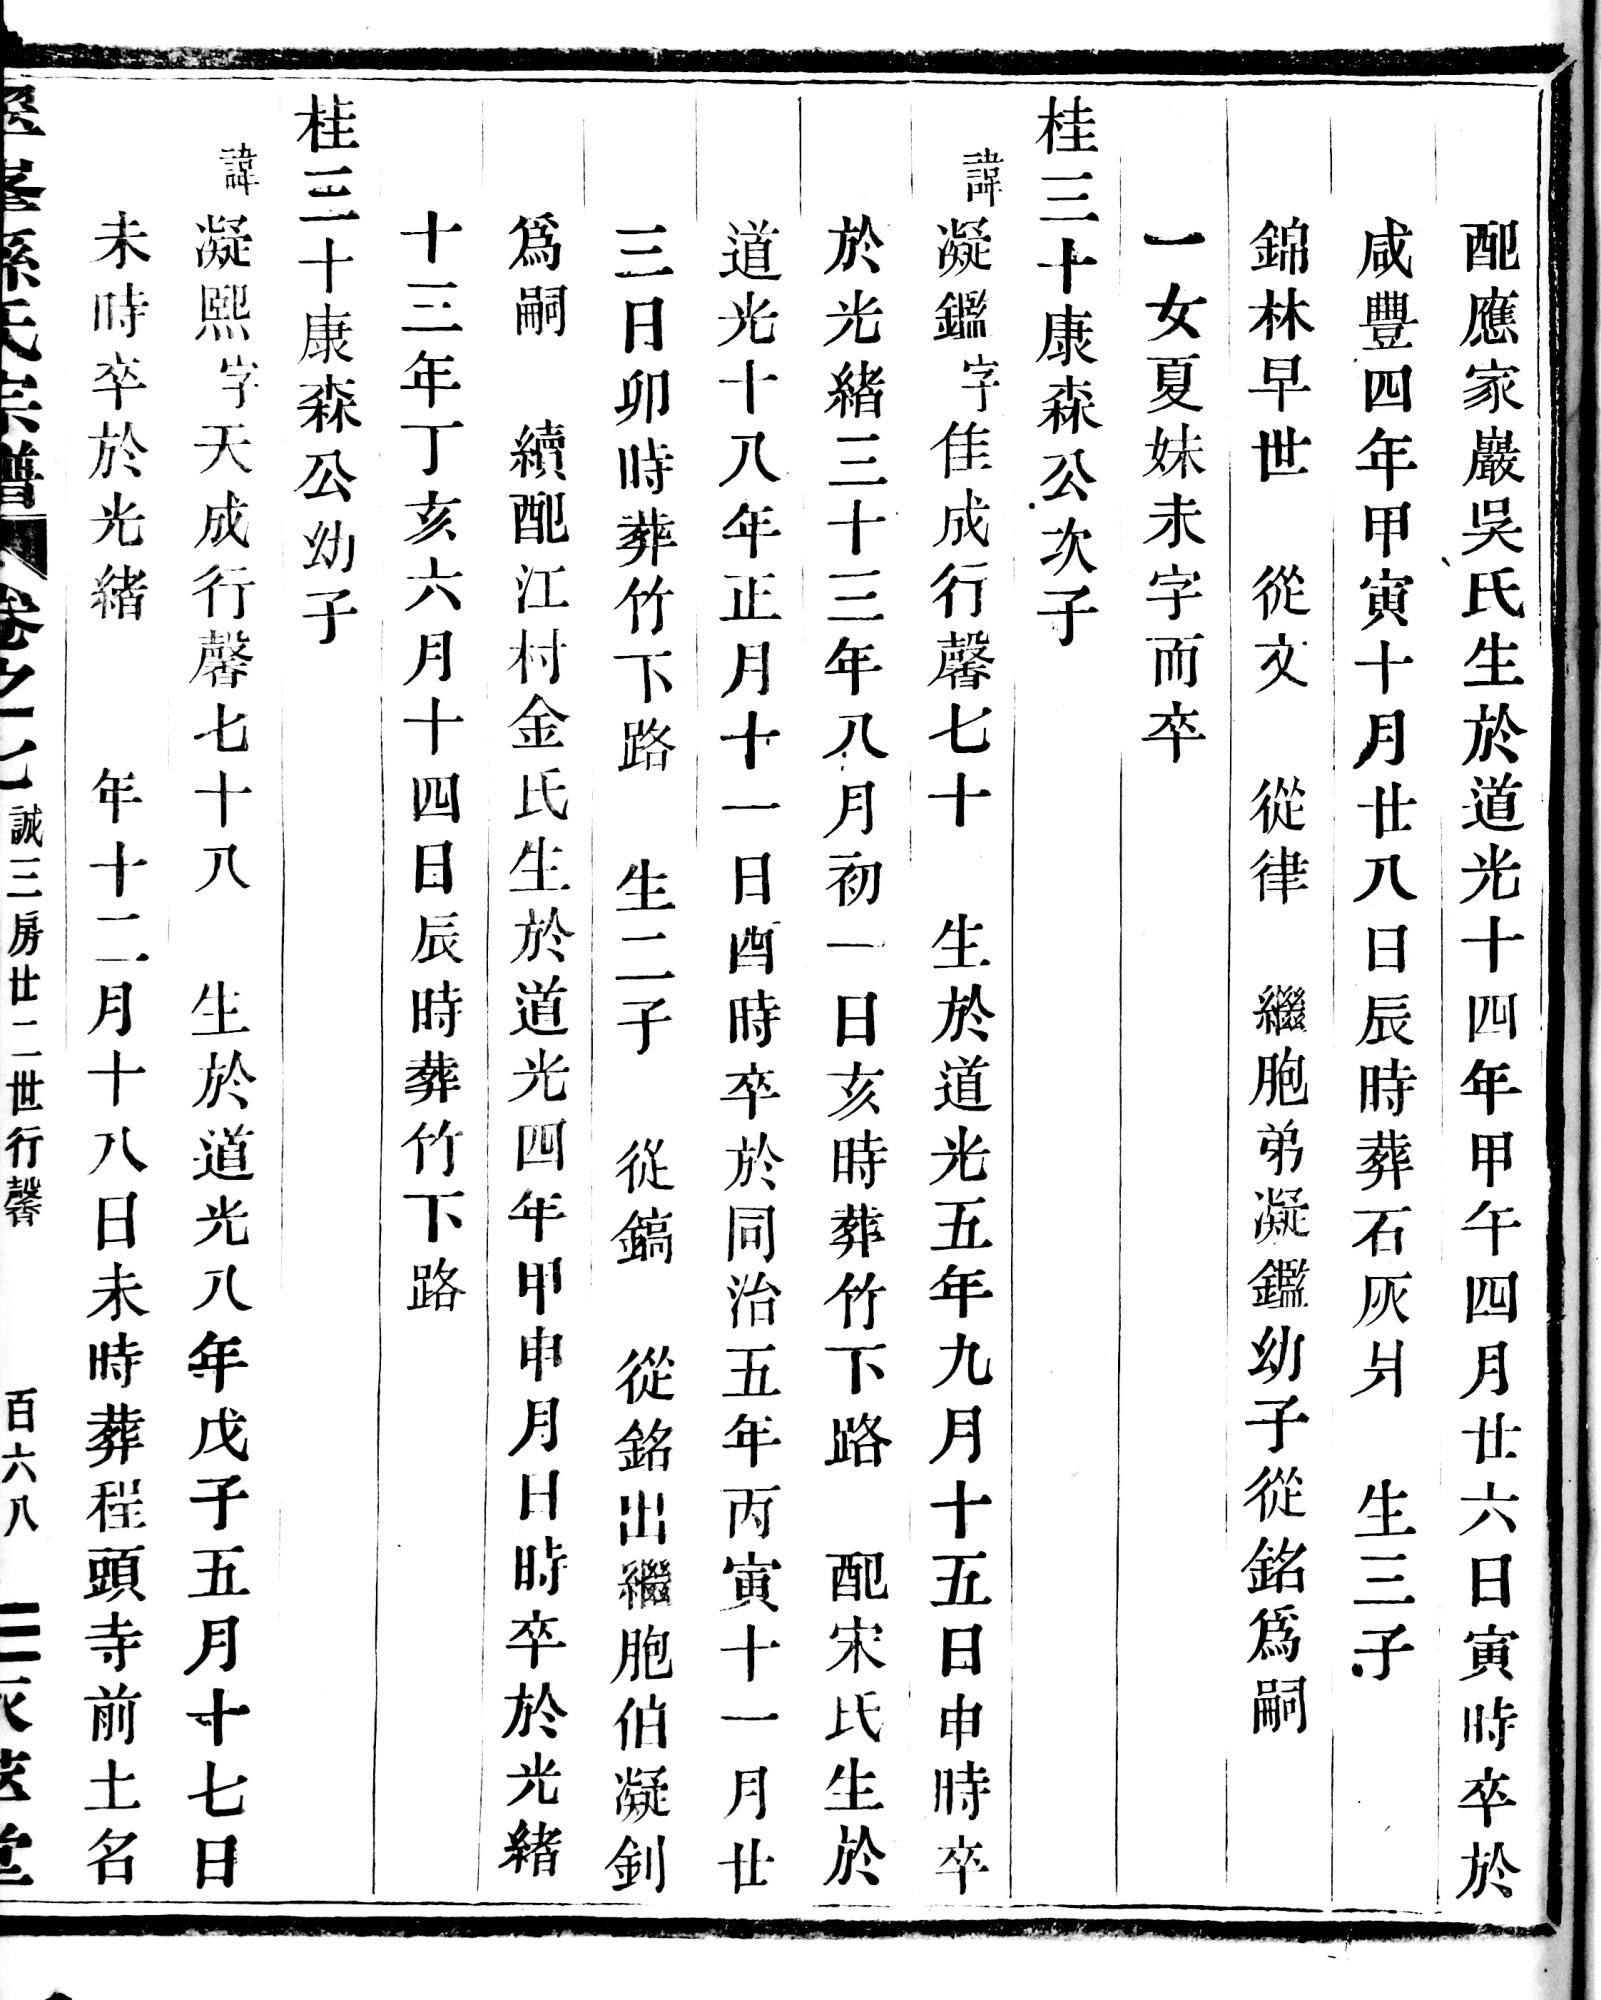 配應家巖吳氏生於道光十四年甲午四月廿六日寅時卒於
咸豐四年甲寅十月廿八日辰時葬石灰爿 生三子
錦林早世 從文 從律 繼胞弟凝鑑幼子從銘爲嗣
一女夏妹未字而卒
桂三十康森公次子
諱凝鑑字隹成行馨七十 生於道光五年九月十五日申時卒
於光緒三十三年八月初一日亥時葬竹下路 配宋氏生於
道光十八年正月十一日酉時卒於同治五年丙寅十一月廿
三日卯時葬竹下路 生二子 從鎬 從銘出繼胞伯凝釗
爲嗣 續配江村金氏生於道光四年甲申月日時卒於光緒
十三年丁亥六月十四日辰時葬竹下路
桂三十康森公幼子
諱凝熙字天成行馨七十八 生於道光八年戊子五月十七日
未時卒於光緒 年十二月十八日未時葬程頭寺前土名
孫氏宗譜 卷之一七 誠三房廿二世行馨 百六八 堂